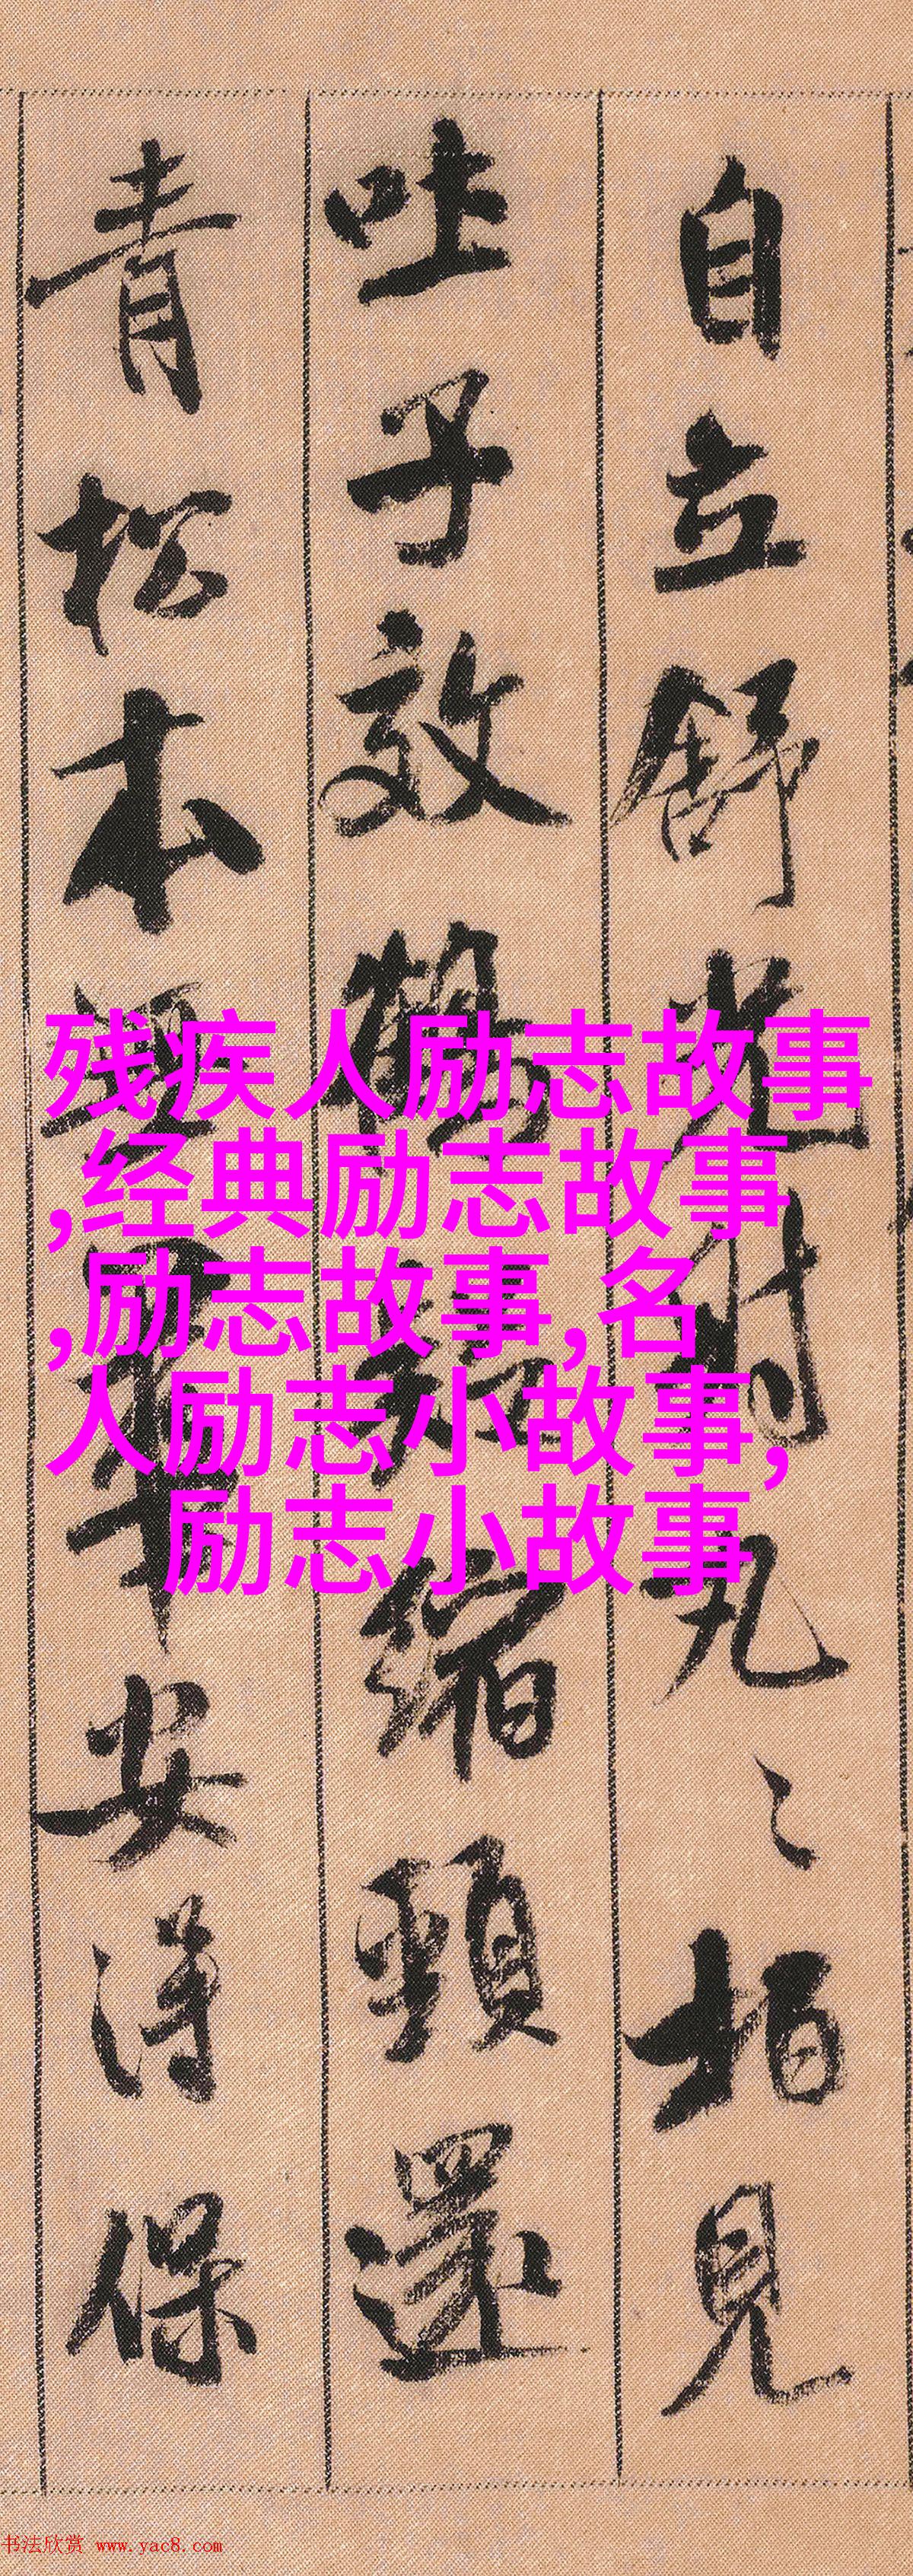 自立舒光射丸〻柏見
吐子效鶴疑縮頸還
青松本無華安得保
残疾人励志故事
,经典励志故事
,励志故事,名
人励志小故事,
励志小故事
书法欣赏 www.yac8.com